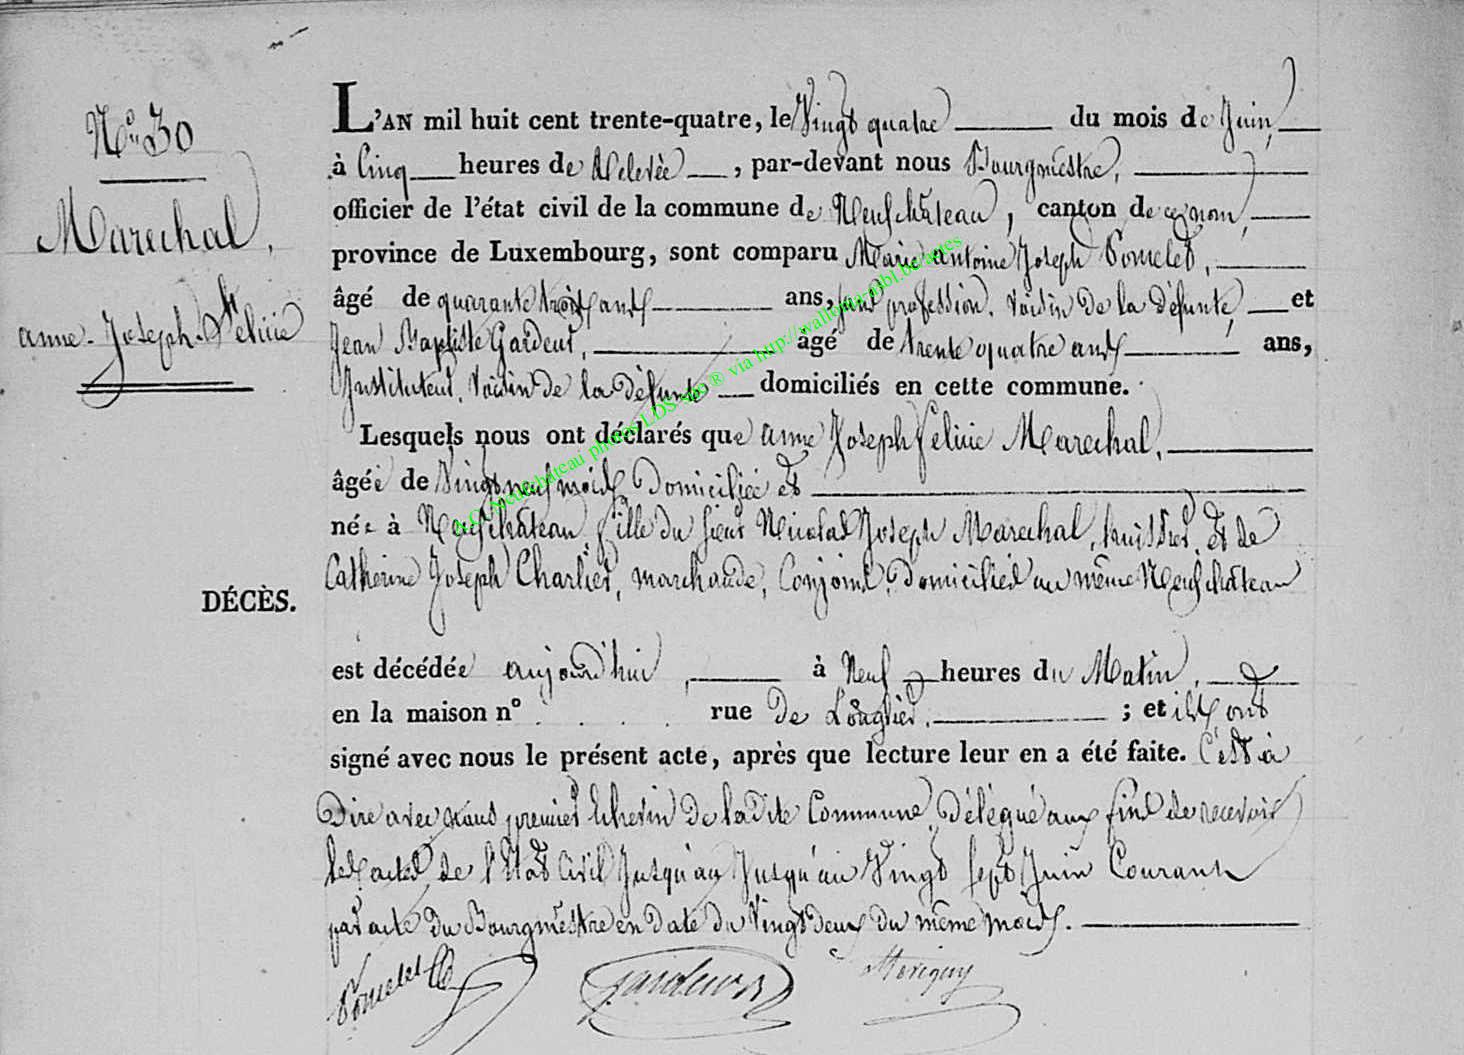 N.° 30
Marechal,
anne-Joseph-Félicie
DÉCÈS.
L'AN mil huit cent trente-quatre, le Vingt quatre du mois de Juin,
à Cinq heures de Relevée, par-devant nous Bourgmestre,
officier de l'état civil de la commune de Neufchâteau, canton de ce nom,
province de Luxembourg, sont comparu Marie antoine Joseph Pomelet,
âgé de quarante trois ans ans, sans profession, Voisin de la défunte, et
Jean Baptiste Gardeur, âgé de trente quatre ans ans,
Instituteur, Voisin de la défunte domiciliés en cette commune.
Lesquels nous ont déclarés que anne Joseph felicie Marechal,
âgée de Vingt neuf mois, Domiciliée et
née à Neufchâteau fille du sieur Nicolas Joseph Marechal, huissier, et de
Catherine Joseph Charlier, marchande, Conjoins, Domiciliés au même Neufchâteau
est décédée aujourd'hui, à Neuf heures du Matin,
en la maison n° . . . . rue De Longlier, ; et ils ont
signé avec nous le présent acte, après que lecture leur en a été faite. C'est à
Dire avec nous premier Echevin De ladite Commune, Délégué aux fins de recevoir
les actes de l'Etat Civil Jusqu'au Jusqu'au Vingt sept Juin Courant
par acte du Bourgmestre en date du Vingt deux du même mois.
Pomelet
Gardeur
via http://wallonia-asbl.be/actes